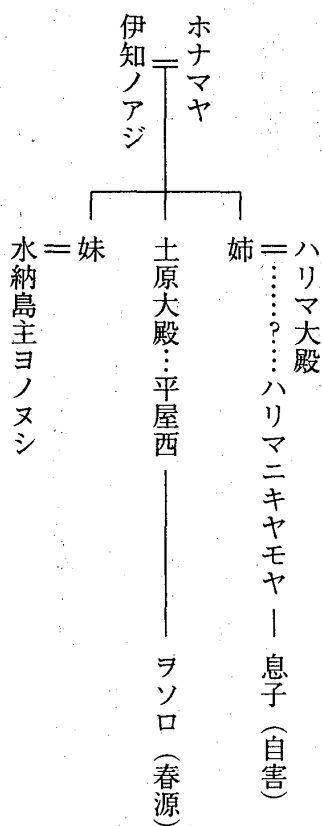 ホナマヤ
伊知ノアジ
ハリマ大殿
姉＝……？……ハリマニキヤモヤ―息子（自害）
土原大殿…平屋西―ヲソロ（春源）
妹
水納島主ヨノヌシ